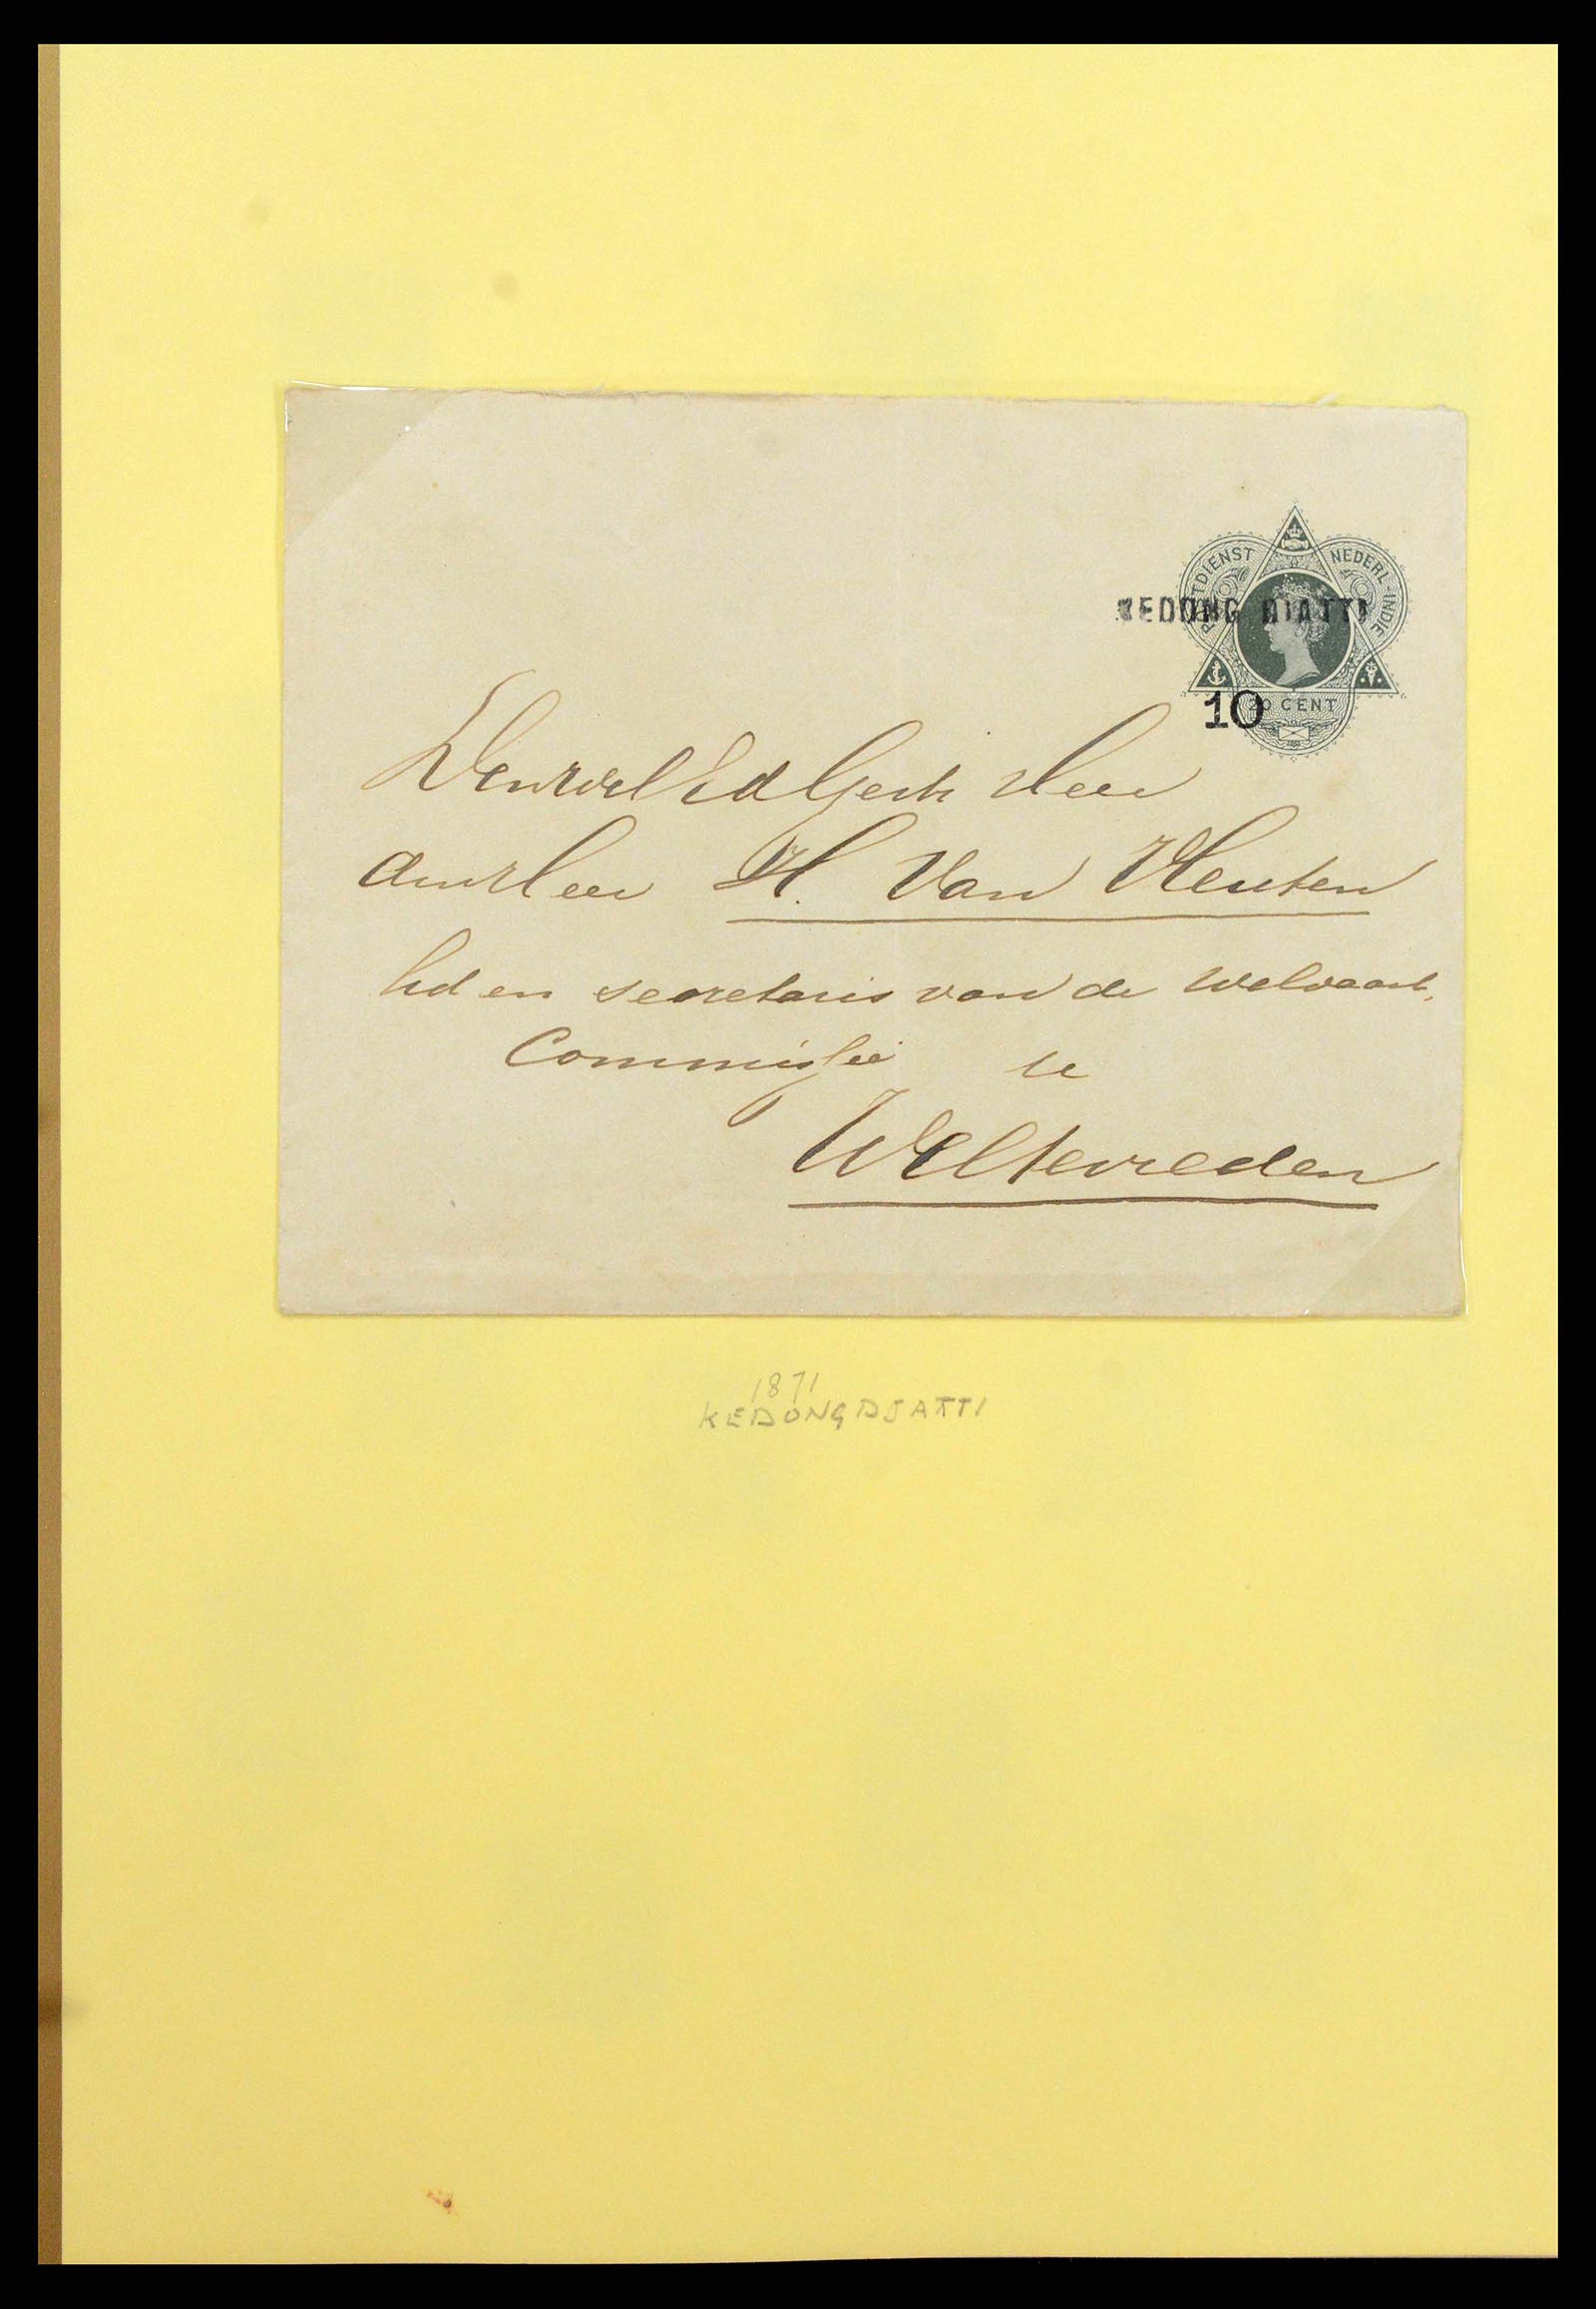 POSTDIENST NEDERL-INDIE
KEDONG DJATTI
20 CENT
10
Den Wel Ed Gestr Heer
den Heer H. Van Heuten
lid en secretaris van de Welvaart,
Commissie te
Weltevreden
1871
KEDONGDJATTI